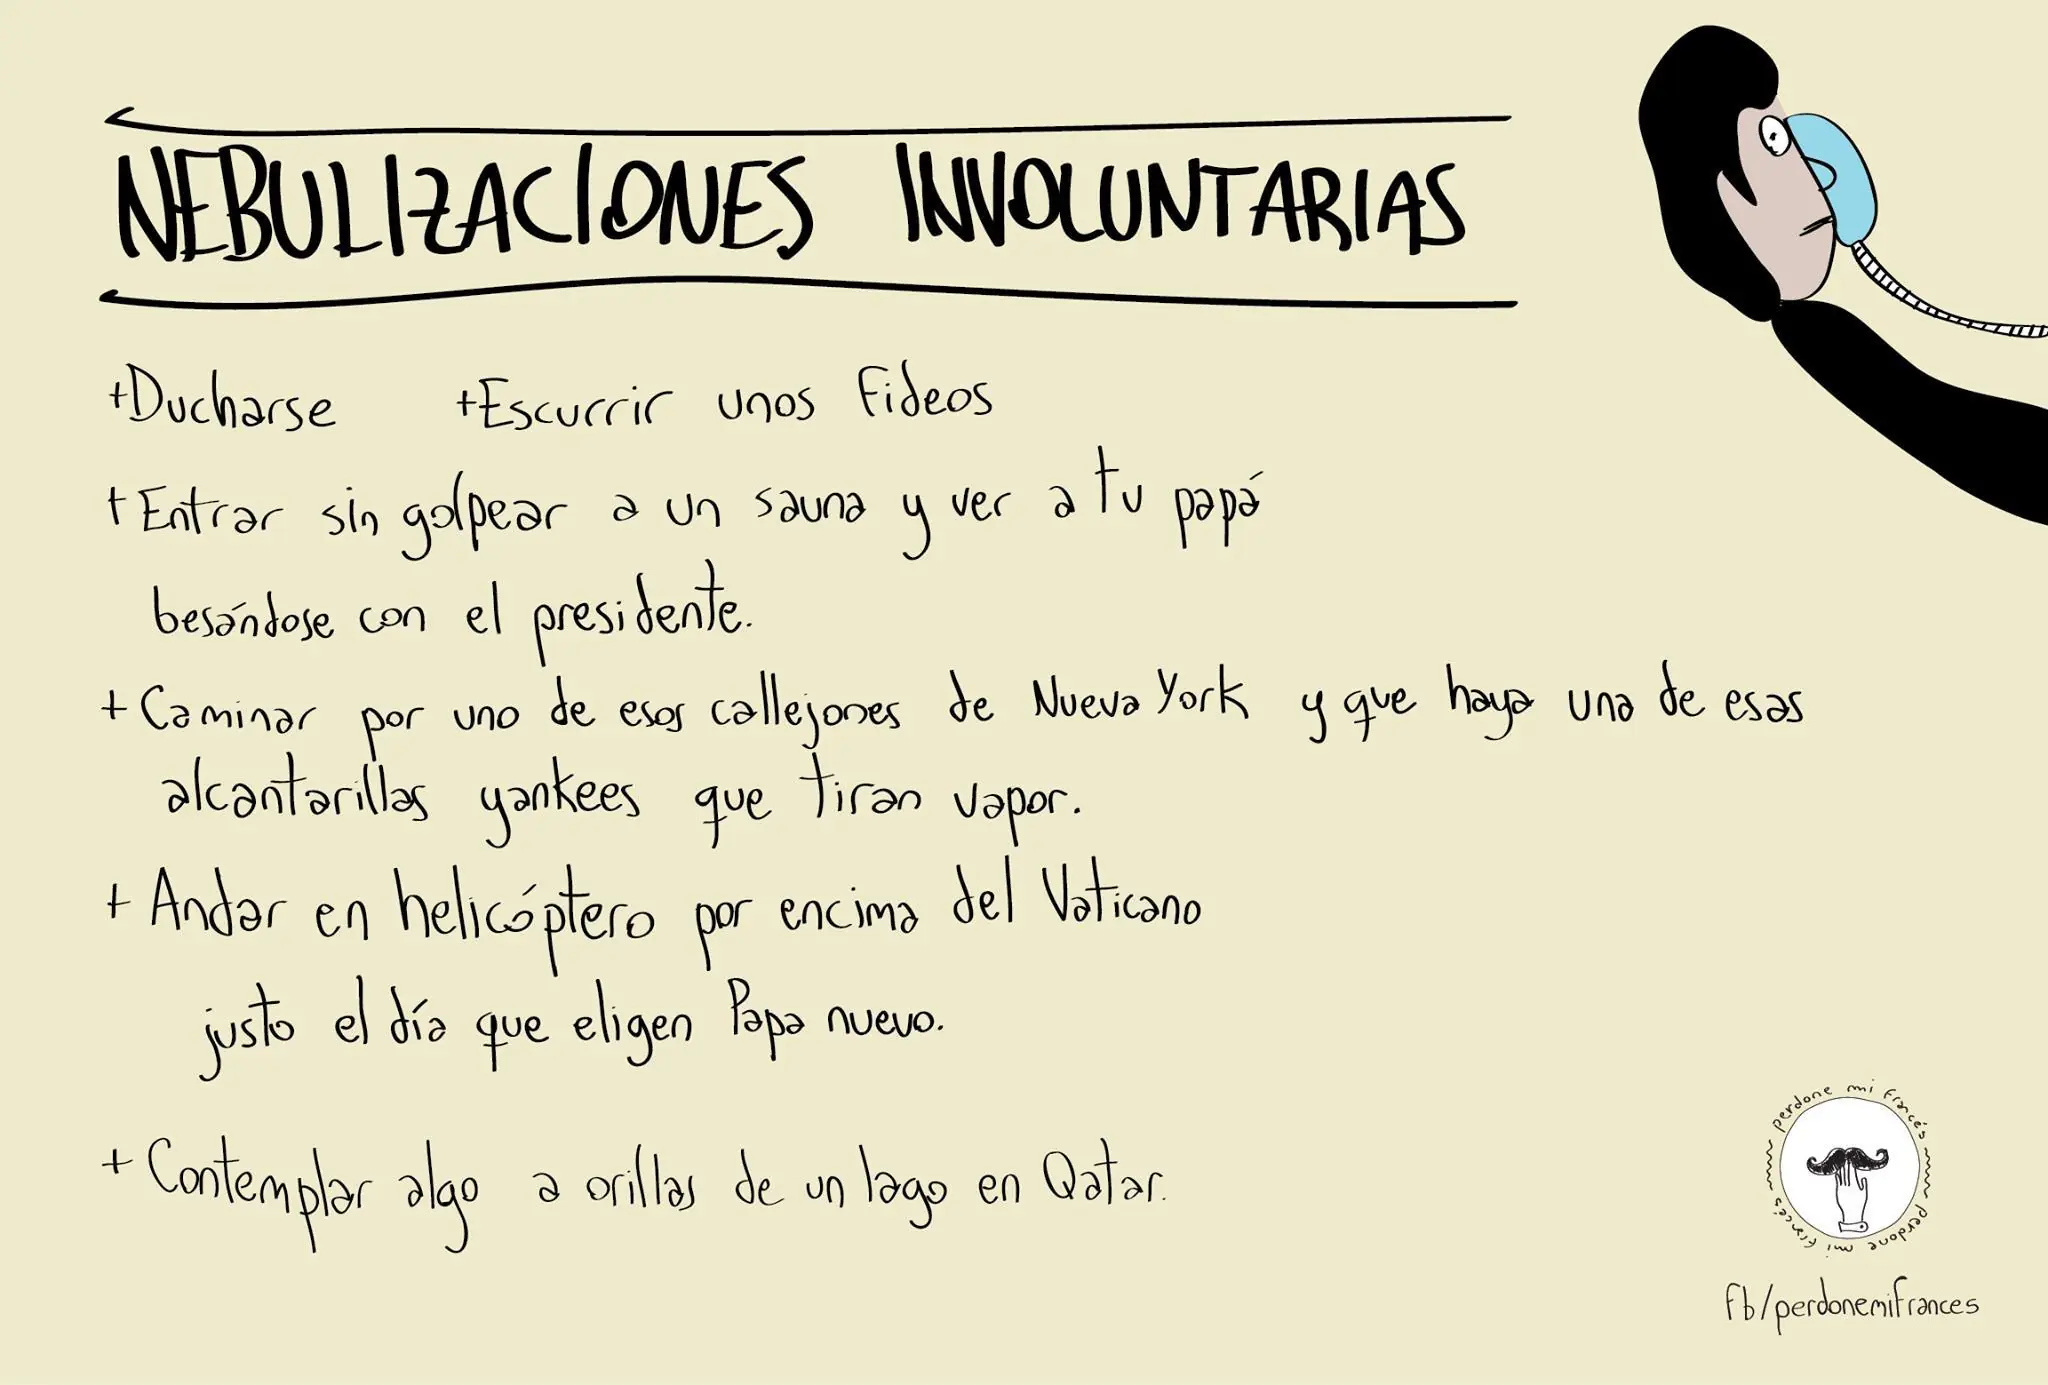 NEBULIZACIONES INVOLUNTARIAS
+Ducharse +Escurrir unos fideos
+Entrar sin golpear a un sauna y ver a tu papá
besándose con el presidente.
+Caminar por uno de esos callejones de Nueva York y que haya una de esas
alcantarillas yankees que tiran vapor.
+Andar en helicóptero por encima del Vaticano
justo el día que eligen Papa nuevo.
+Contemplar algo a orillas de un lago en Qatar.
perdone mi francés
perdone mi francés
fb/perdonemifrances